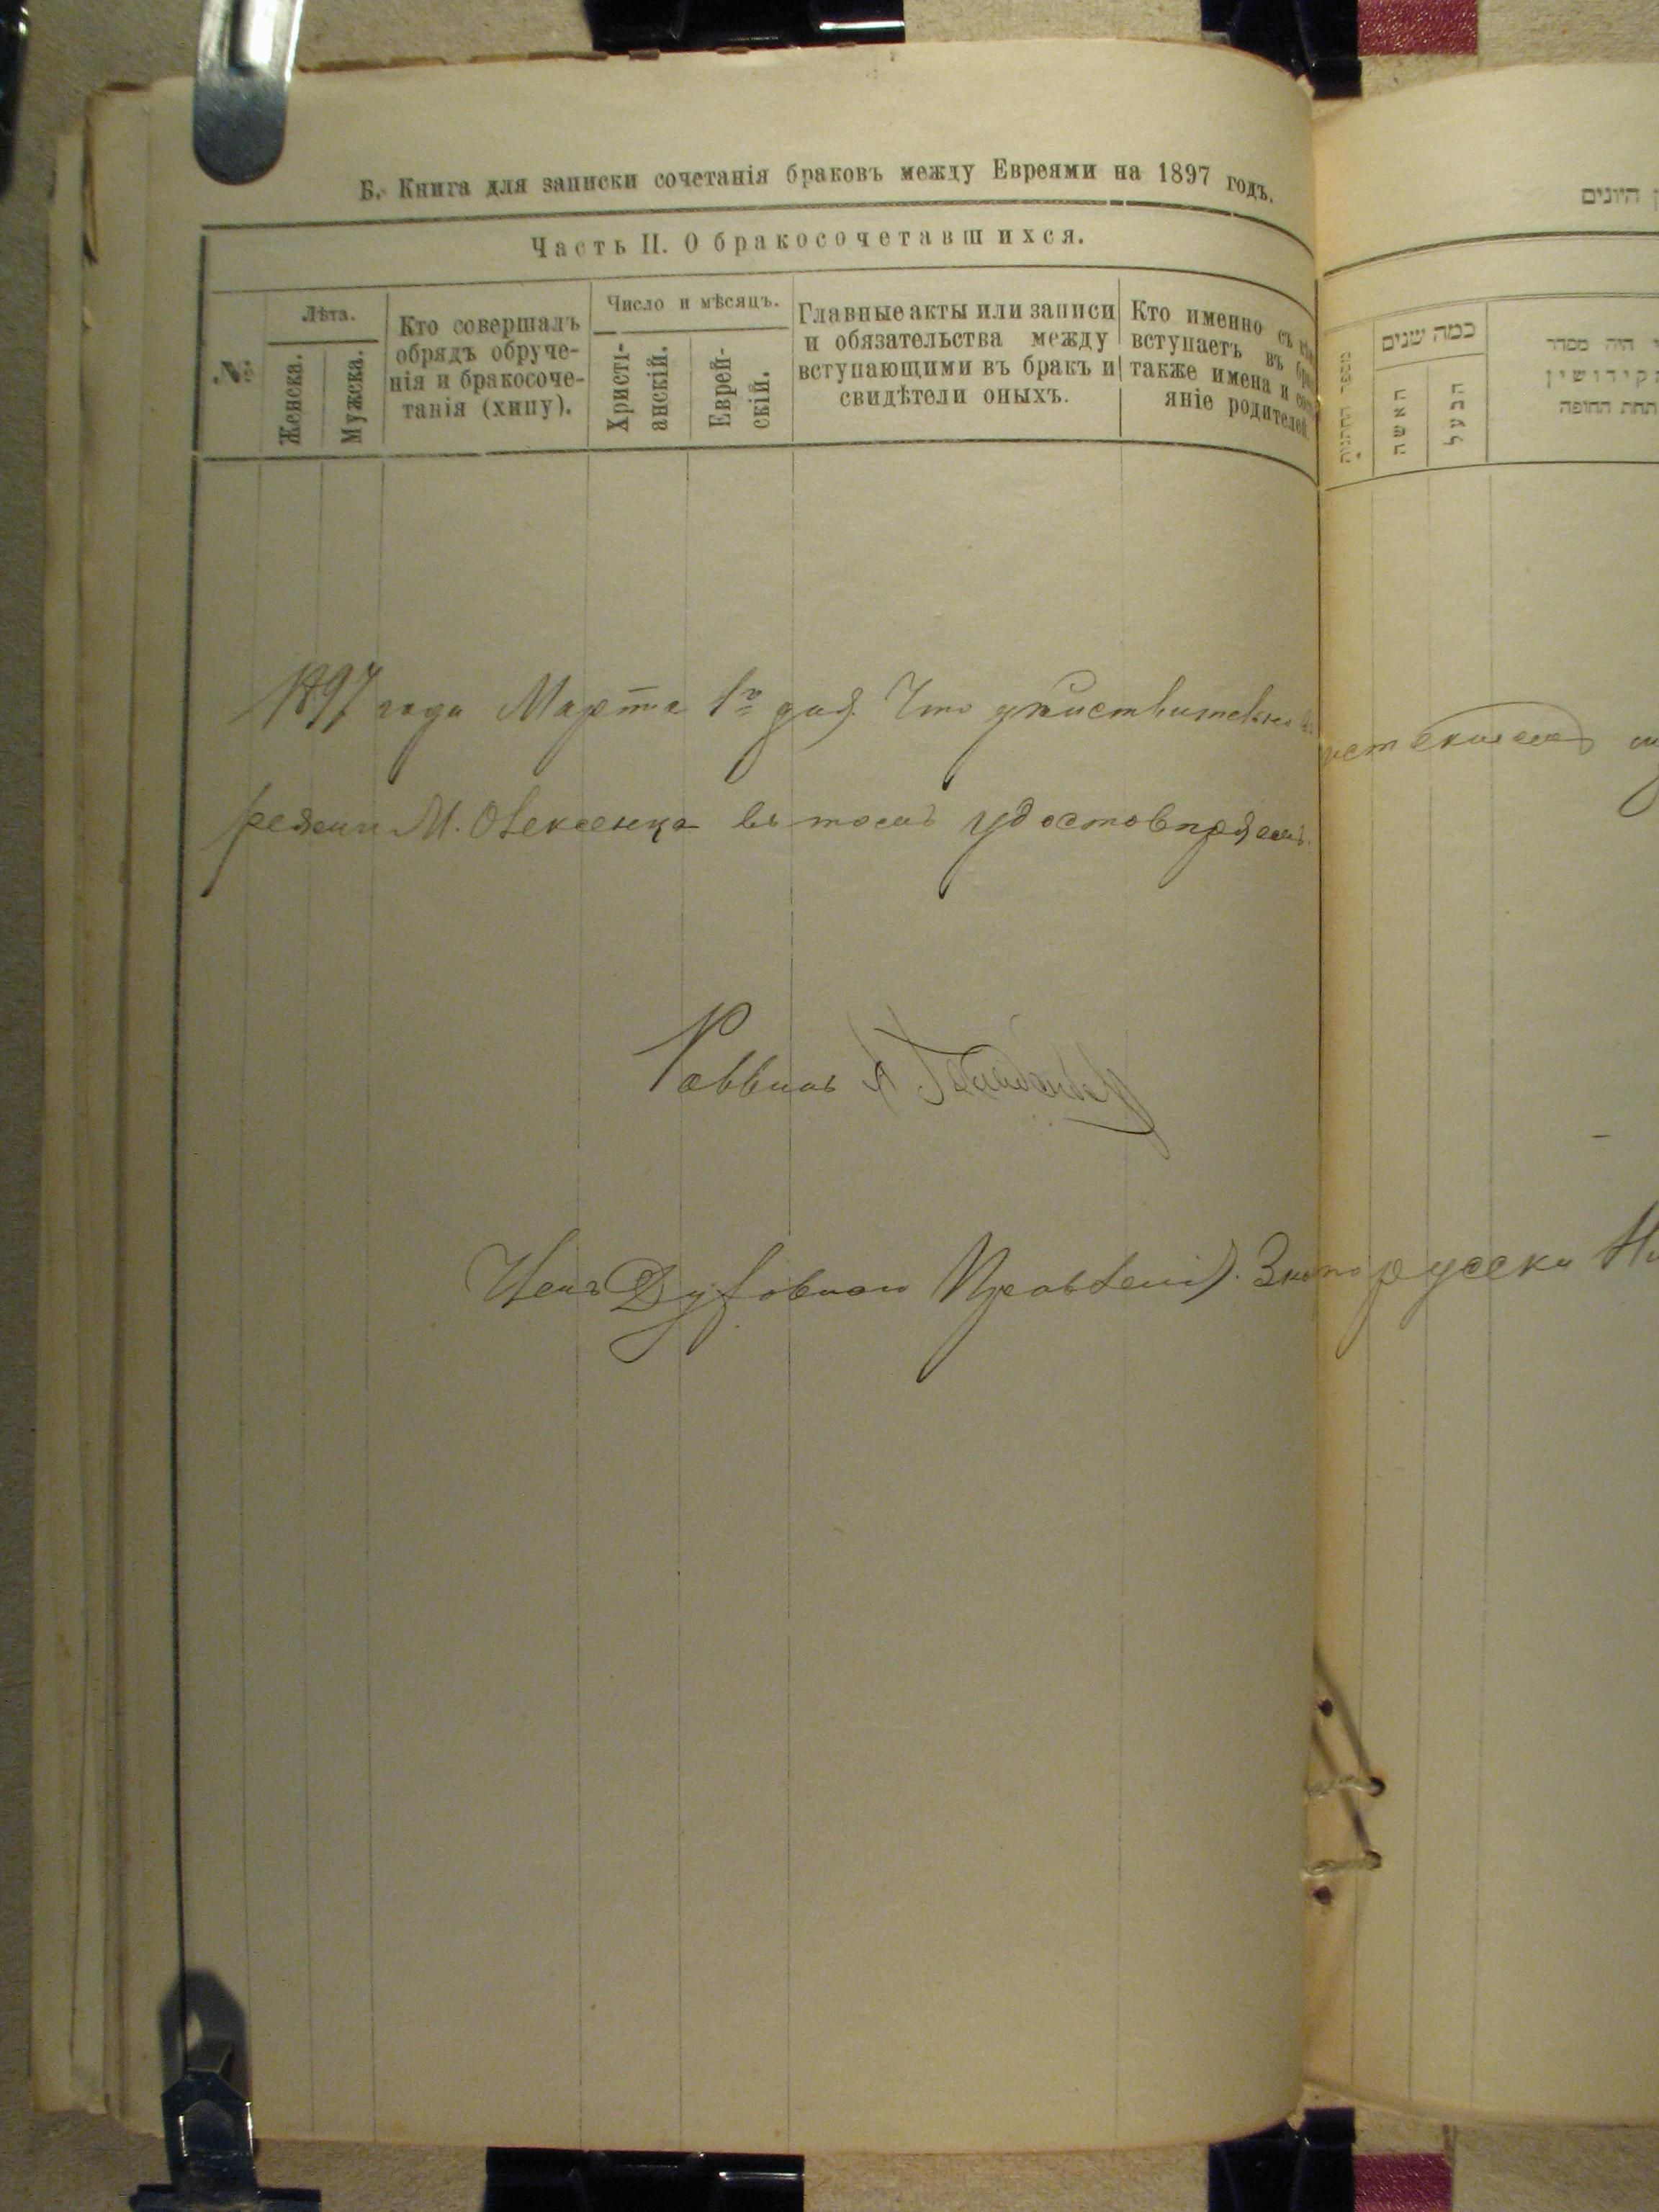 Б. Книга для записки сочетанія браковъ между Евреями на 1897 годъ.
Часть II. О бракосочетавшихся.
№
Лѣта.
Женска.
Мужска.
Кто совершалъ
обрядъ обруче-
нія и бракосоче-
танія (хипу).
Число и мѣсяцъ.
Христі-
анскій.
Еврей-
скій.
Главные акты или записи
и обязательства между
вступающими въ бракъ и
свидѣтели оныхъ.
Кто именно съ
вступаетъ въ
также имена и
яніе родителей.
היונים
כמה שנים
האשה
הבעל
היה מסדר
קידושין
תחת החופה
1897 года Марта 1го дня. Что
М. въ томъ удостовѣряемъ.
Раввинъ
Членъ Духовнаго Правленія. Знаю русски